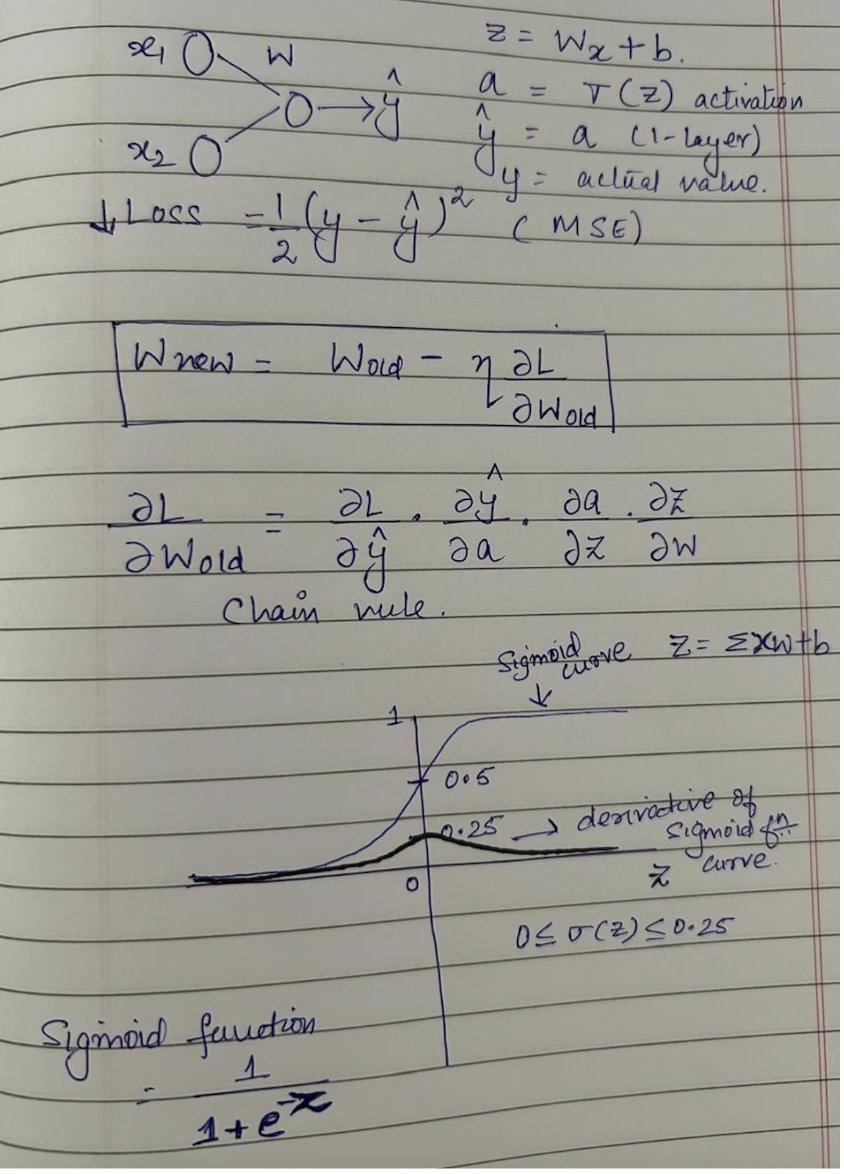 x₁ W z = Wx + b.
ŷ a = σ(z) activation
x₂ ŷ = a (1-layer)
y = actual value.
↓ Loss = 1/2 (y - ŷ)² (MSE)
Wnew = Wold - η ∂L/∂Wold
∂L/∂Wold = ∂L/∂ŷ . ∂ŷ/∂a . ∂a/∂z . ∂z/∂w
Chain rule.
Sigmoid curve z = Σxw+b
1
0.5
0.25 → derivative of
sigmoid fn.
curve.
z
0
0 ≤ σ(z) ≤ 0.25
Sigmoid function
= 1/(1+e^-z)